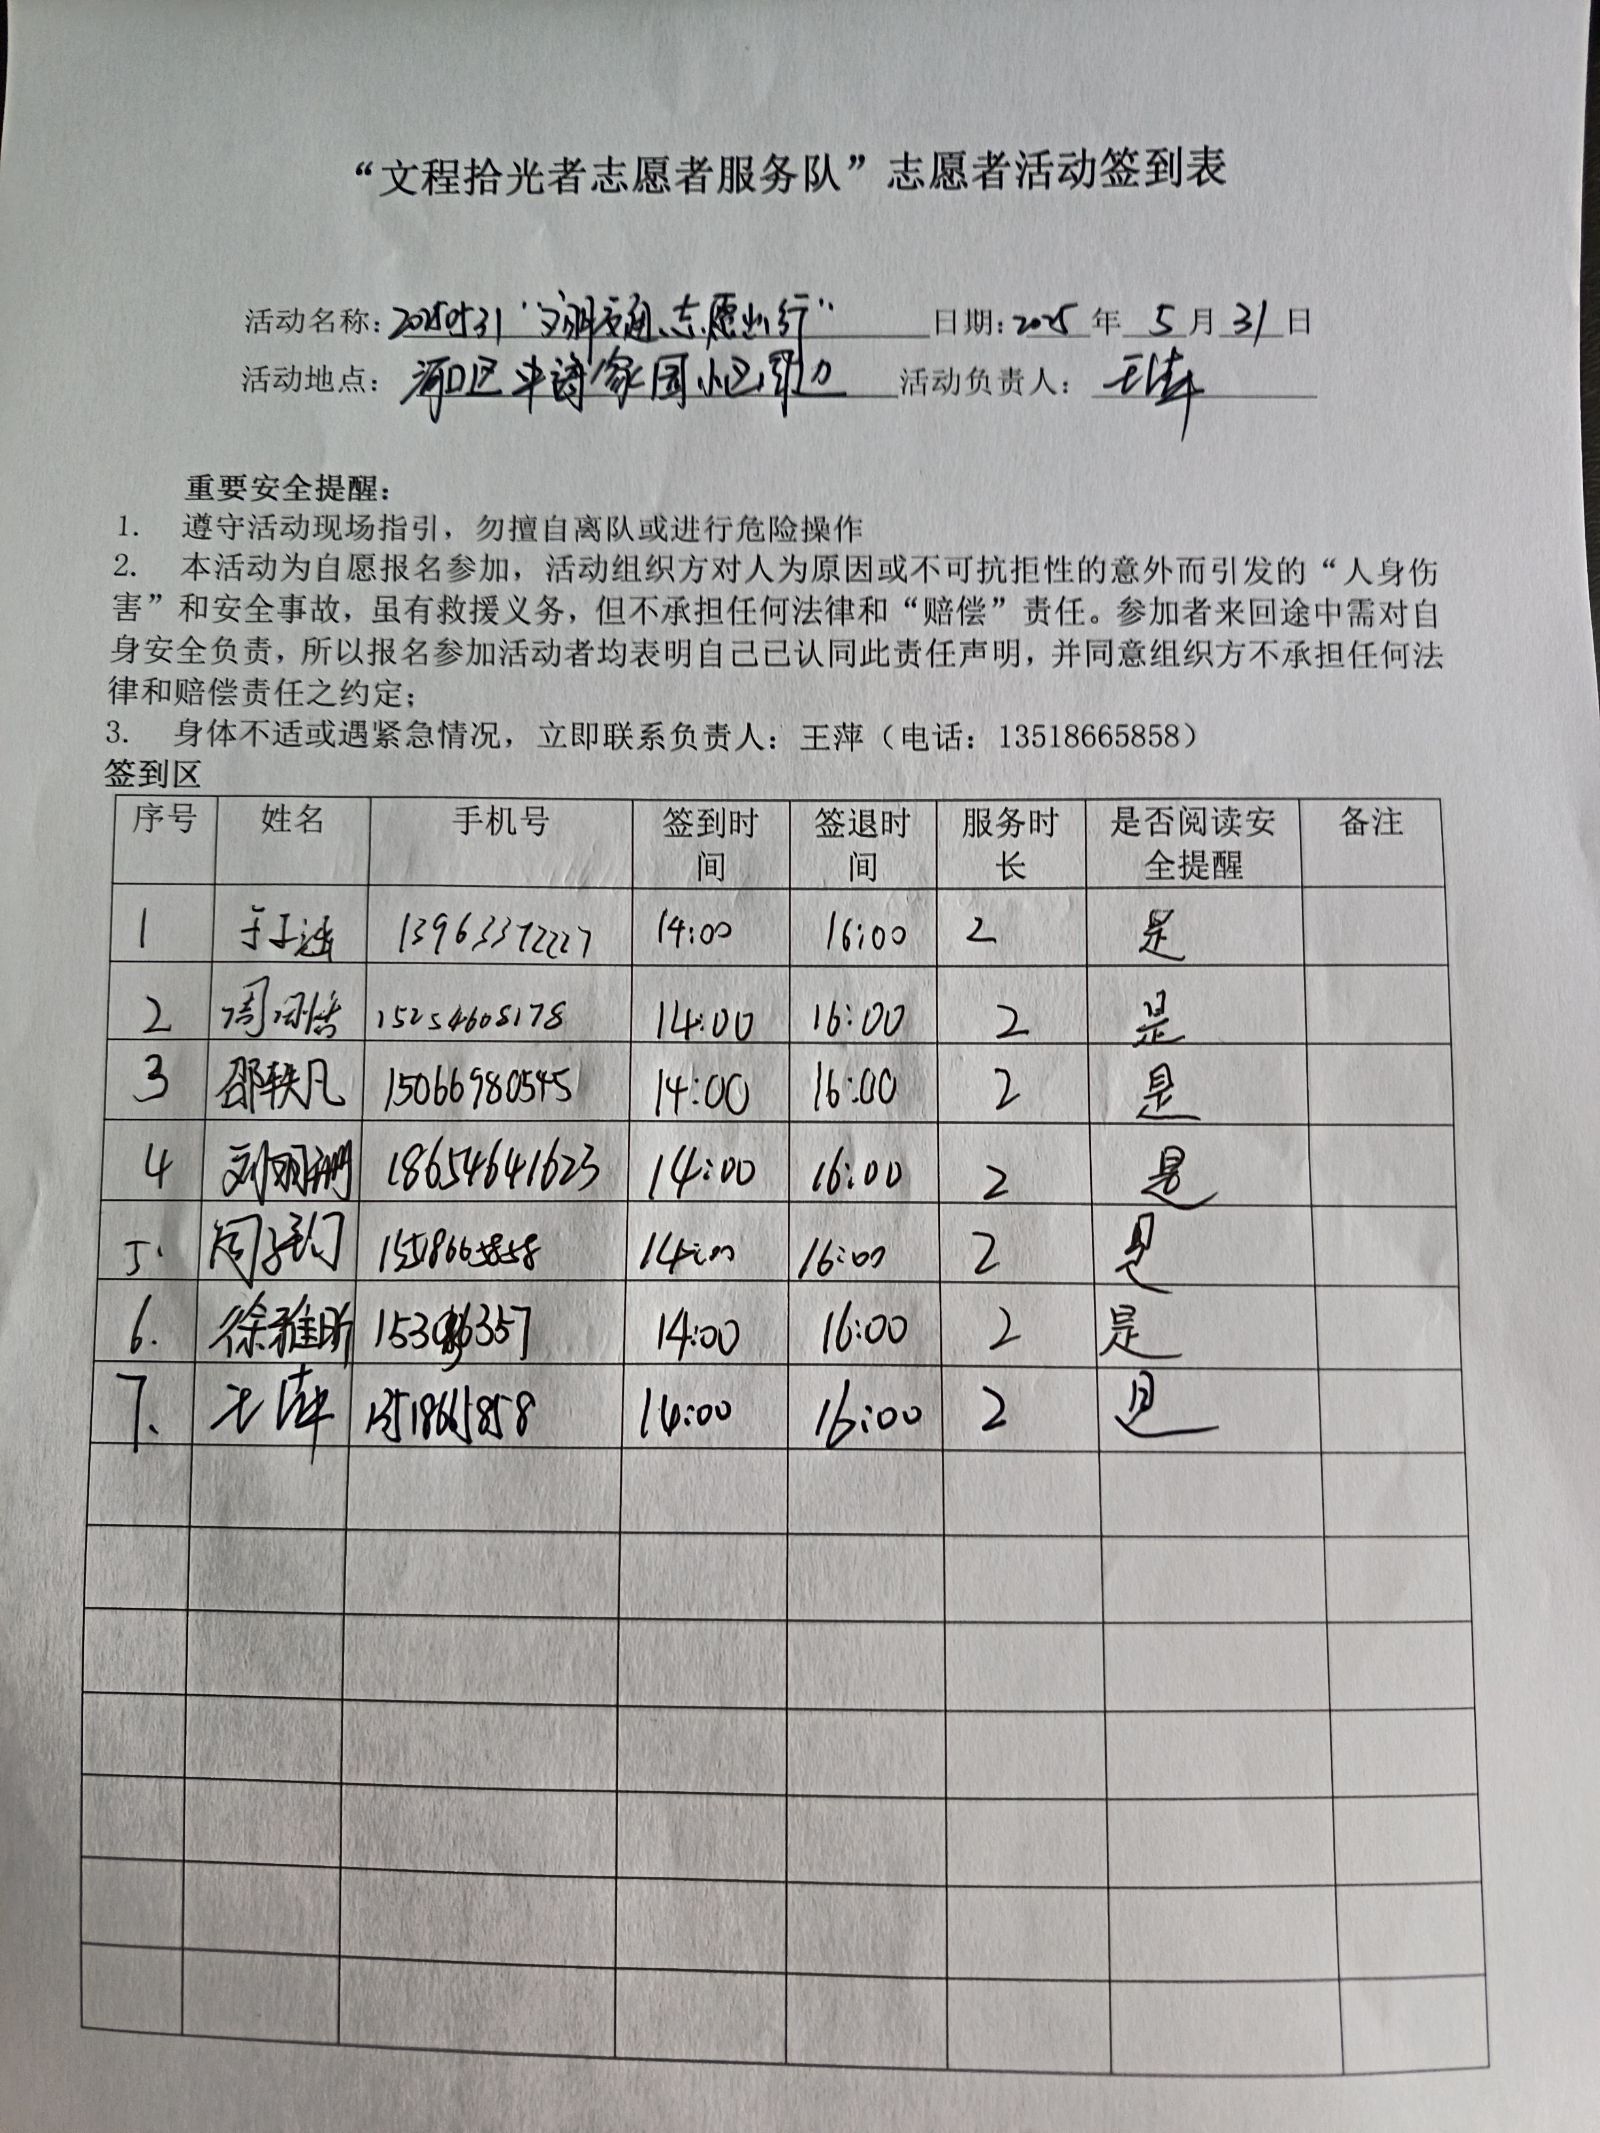 “文程拾光者志愿者服务队”志愿者活动签到表
活动名称：20250531“文明交通，志愿出行” 日期：2025 年 5 月 31 日
活动地点：河口区 家园小区周边 活动负责人：王萍
重要安全提醒：
1. 遵守活动现场指引，勿擅自离队或进行危险操作
2. 本活动为自愿报名参加，活动组织方对人为原因或不可抗拒性的意外而引发的“人身伤
害”和安全事故，虽有救援义务，但不承担任何法律和“赔偿”责任。参加者来回途中需对自
身安全负责，所以报名参加活动者均表明自己已认同此责任声明，并同意组织方不承担任何法
律和赔偿责任之约定；
3. 身体不适或遇紧急情况，立即联系负责人：王萍（电话：13518665858）
签到区
序号 姓名 手机号 签到时间 签退时间 服务时长 是否阅读安全提醒 备注
1 于子涵 13963372227 14:00 16:00 2 是
2 周 15254608178 14:00 16:00 2 是
3 邵轶凡 15066980545 14:00 16:00 2 是
4 刘珊 18654641623 14:00 16:00 2 是
5. 周子 14:00 16:00 2 是
6. 徐雅昕 14:00 16:00 2 是
7. 王萍 13518665858 14:00 16:00 2 是